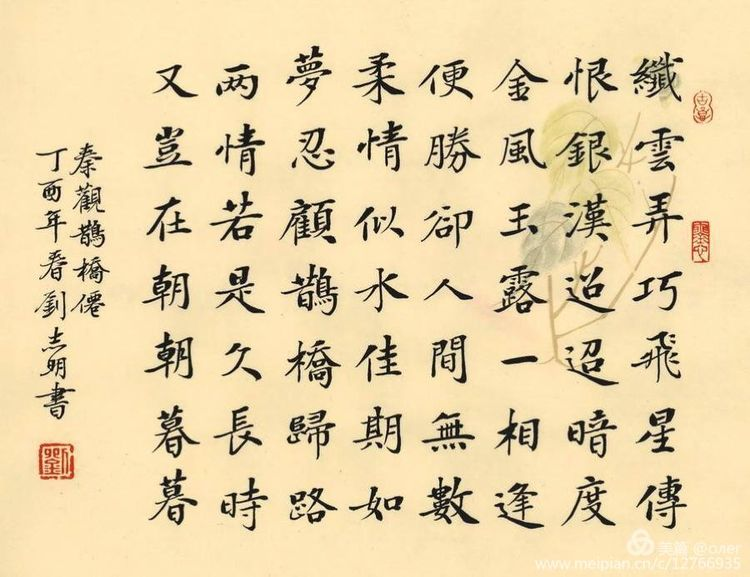 纖雲弄巧飛星傳
恨銀漢迢迢暗度
金風玉露一相逢
便勝卻人間無數
柔情似水佳期如
夢忍顧鵲橋歸路
两情若是久長時
又豈在朝朝暮暮
秦觀鵲橋僊
丁酉年春劉志明書
劉
美篇 @олег
www.meipian.cn/c/12766935